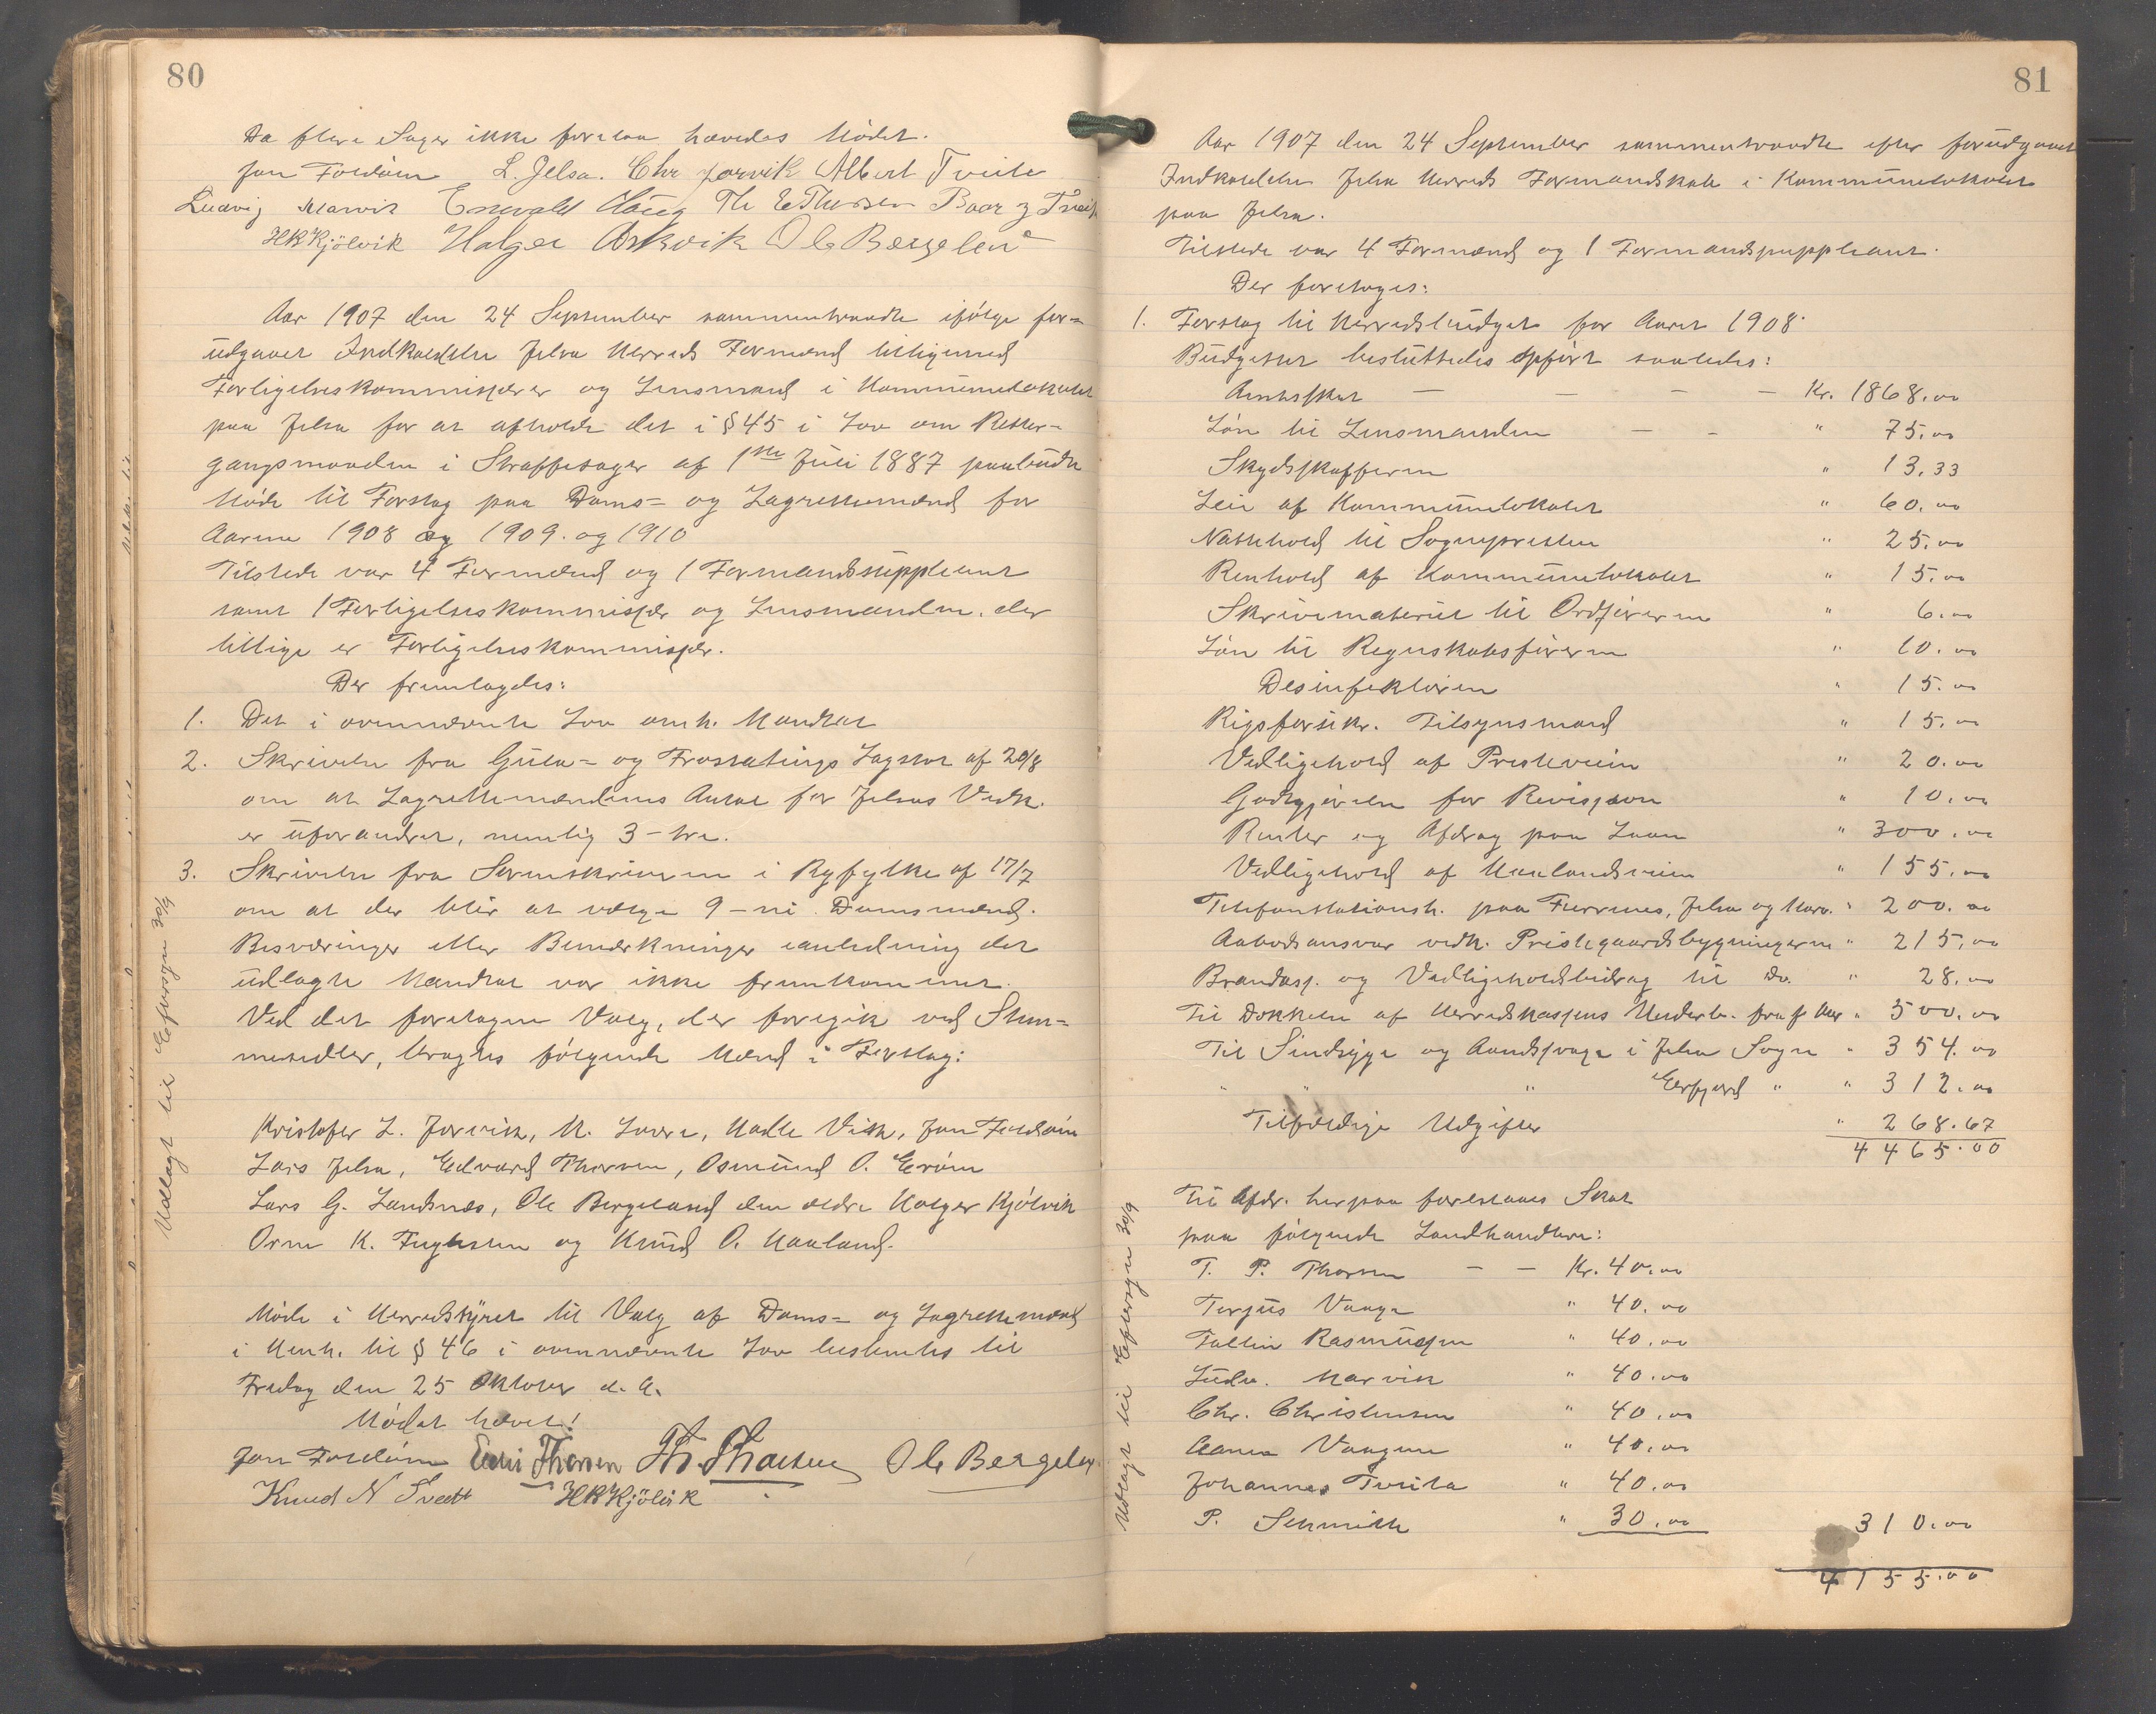 80
Da flere Sager ikke forelaa hævedes Mødet.
Jon Foldøm L. Jelsa. Chr Jorvik Albert Tveite
Ludvig Marvik Enevald Haug Th E Thorsen Baar J Tveit
HKKjölvik Holger Askvik Ole Bergeland
Aar 1907 den 24 September sammentraadte ifølge for-
udgaaet Indkaldelse Jelsa Herreds Formænd tilligemed
Forligelseskommissærer og Lensmand i Kommunelokalet
paa Jelsa for at afholde det i § 45 i Lov om Retter-
gangsmaaden i Straffesager af 1ste Juli 1887 paabudte
Møde til Forslag paa Doms- og Lagrettemænd for
Aarene 1908 og 1909. og 1910
Tilstede var 4 Formænd og 1 Formandssuppleant
samt 1 Forligelseskommissær og Lensmanden, der
tillige er Forligelseskommissær.
Der fremlagdes:
1. Det i ovennævnte Lov omh. Mandtal
2. Skrivelse fra Gula- og Frostatings Lagstol af 20/8
om at Lagrettemændenes Antal for Jelsas Vedk.
er uforandret, nemlig 3 - tre.
3. Skrivelse fra Sorenskriveren i Ryfylke af 17/7
om at der blir at vælge 9 - ni Domsmænd.
Besværinger eller Bemærkninger i anledning det
udlagte Mandtal var ikke fremkommet.
Ved det foretagne Valg, der foregik ved Stem-
mesedler, bragtes følgende Mænd i Forslag:
Kristofer L. Jorvik, M. Lovra, Malle Vik, Jon Foldøm
Lars Jelsa, Edvard Thorsen, Osmund O. Erøm
Lars G. Landsnes, Ole Bergeland den ældre Holger Kjölvik
Orm K. Fuglesten og Knud O. Haaland.
Møde i Herredstyret til Valg af Doms- og Lagrettemænd
i Henh. til § 46 i ovennævnte Lov bestemtes til
Fredag den 25 Oktober d. A.
Mødet hævet!
Jon Foldøm Thorsen Th. Thorsen Ole Bergeland
Knud N Tveit HKKjölvik
Udlagt til Eftersyn 30/9
81
Aar 1907 den 24 September sammentraadte efter forudgaaet
Indkaldelse Jelsa Herreds Formandskab i Kommunelokalet
paa Jelsa.
Tilstede var 4 Formænd og 1 Formandssuppleant.
Der foretoges:
1. Forslag til Herredsbudget for Aaret 1908.
Budgettet besluttedes opført saaledes:
Amtsskat — — — Kr. 1868.00
Løn til Lensmanden — - " 75.00
Skydsskafferen " 13.33
Leie af Kommunelokalet " 60.00
Nattehold til Sognepresten " 25.00
Renhold af Kommunelokalet " 15.00
Skrivemateriel til Ordføreren " 6.00
Løn til Regnskabsføreren " 10.00
Desinfektøren " 15.00
Rigsforsikr. Tilsynsmand " 15.00
Vedligehold af Presteveien " 20.00
Godtgjørelse for Revisjon " 10.00
Renter og Afdrag paa Laan " 300.00
Vedligehold af Haalandsveien " 155.00
Telefonstationsh. paa Furrenes, Jelsa og Marv. " 200.00
Aabodsansvar vedk. Prestegaardsbygningerne " 215.00
Brandass. og Vedligeholdsbidrag til Do. " 28.00
Til Dækkelse af Herredskassens Underb. fra f. Aar " 500.00
Til Sindsyge og Aandssvage i Jelsa Sogn " 354.00
" " " Erfjord " " 312.00
Tilfældige Udgifter " 268.67
4465.00
Til Afdr. herpaa foreslaaes Skat
paa følgende Landhandlere:
T. P. Thorsen — — Kr. 40.00
Torjus Vaage " 40.00
Tallin Rasmussen " 40.00
Ludv. Marvik " 40.00
Chr. Christensen " 40.00
Aanen Vaagen " 40.00
Johannes Tveita " 40.00
P. Schmith " 30.00 310.00
4155.00
Udlagt til Eftersyn 30/9